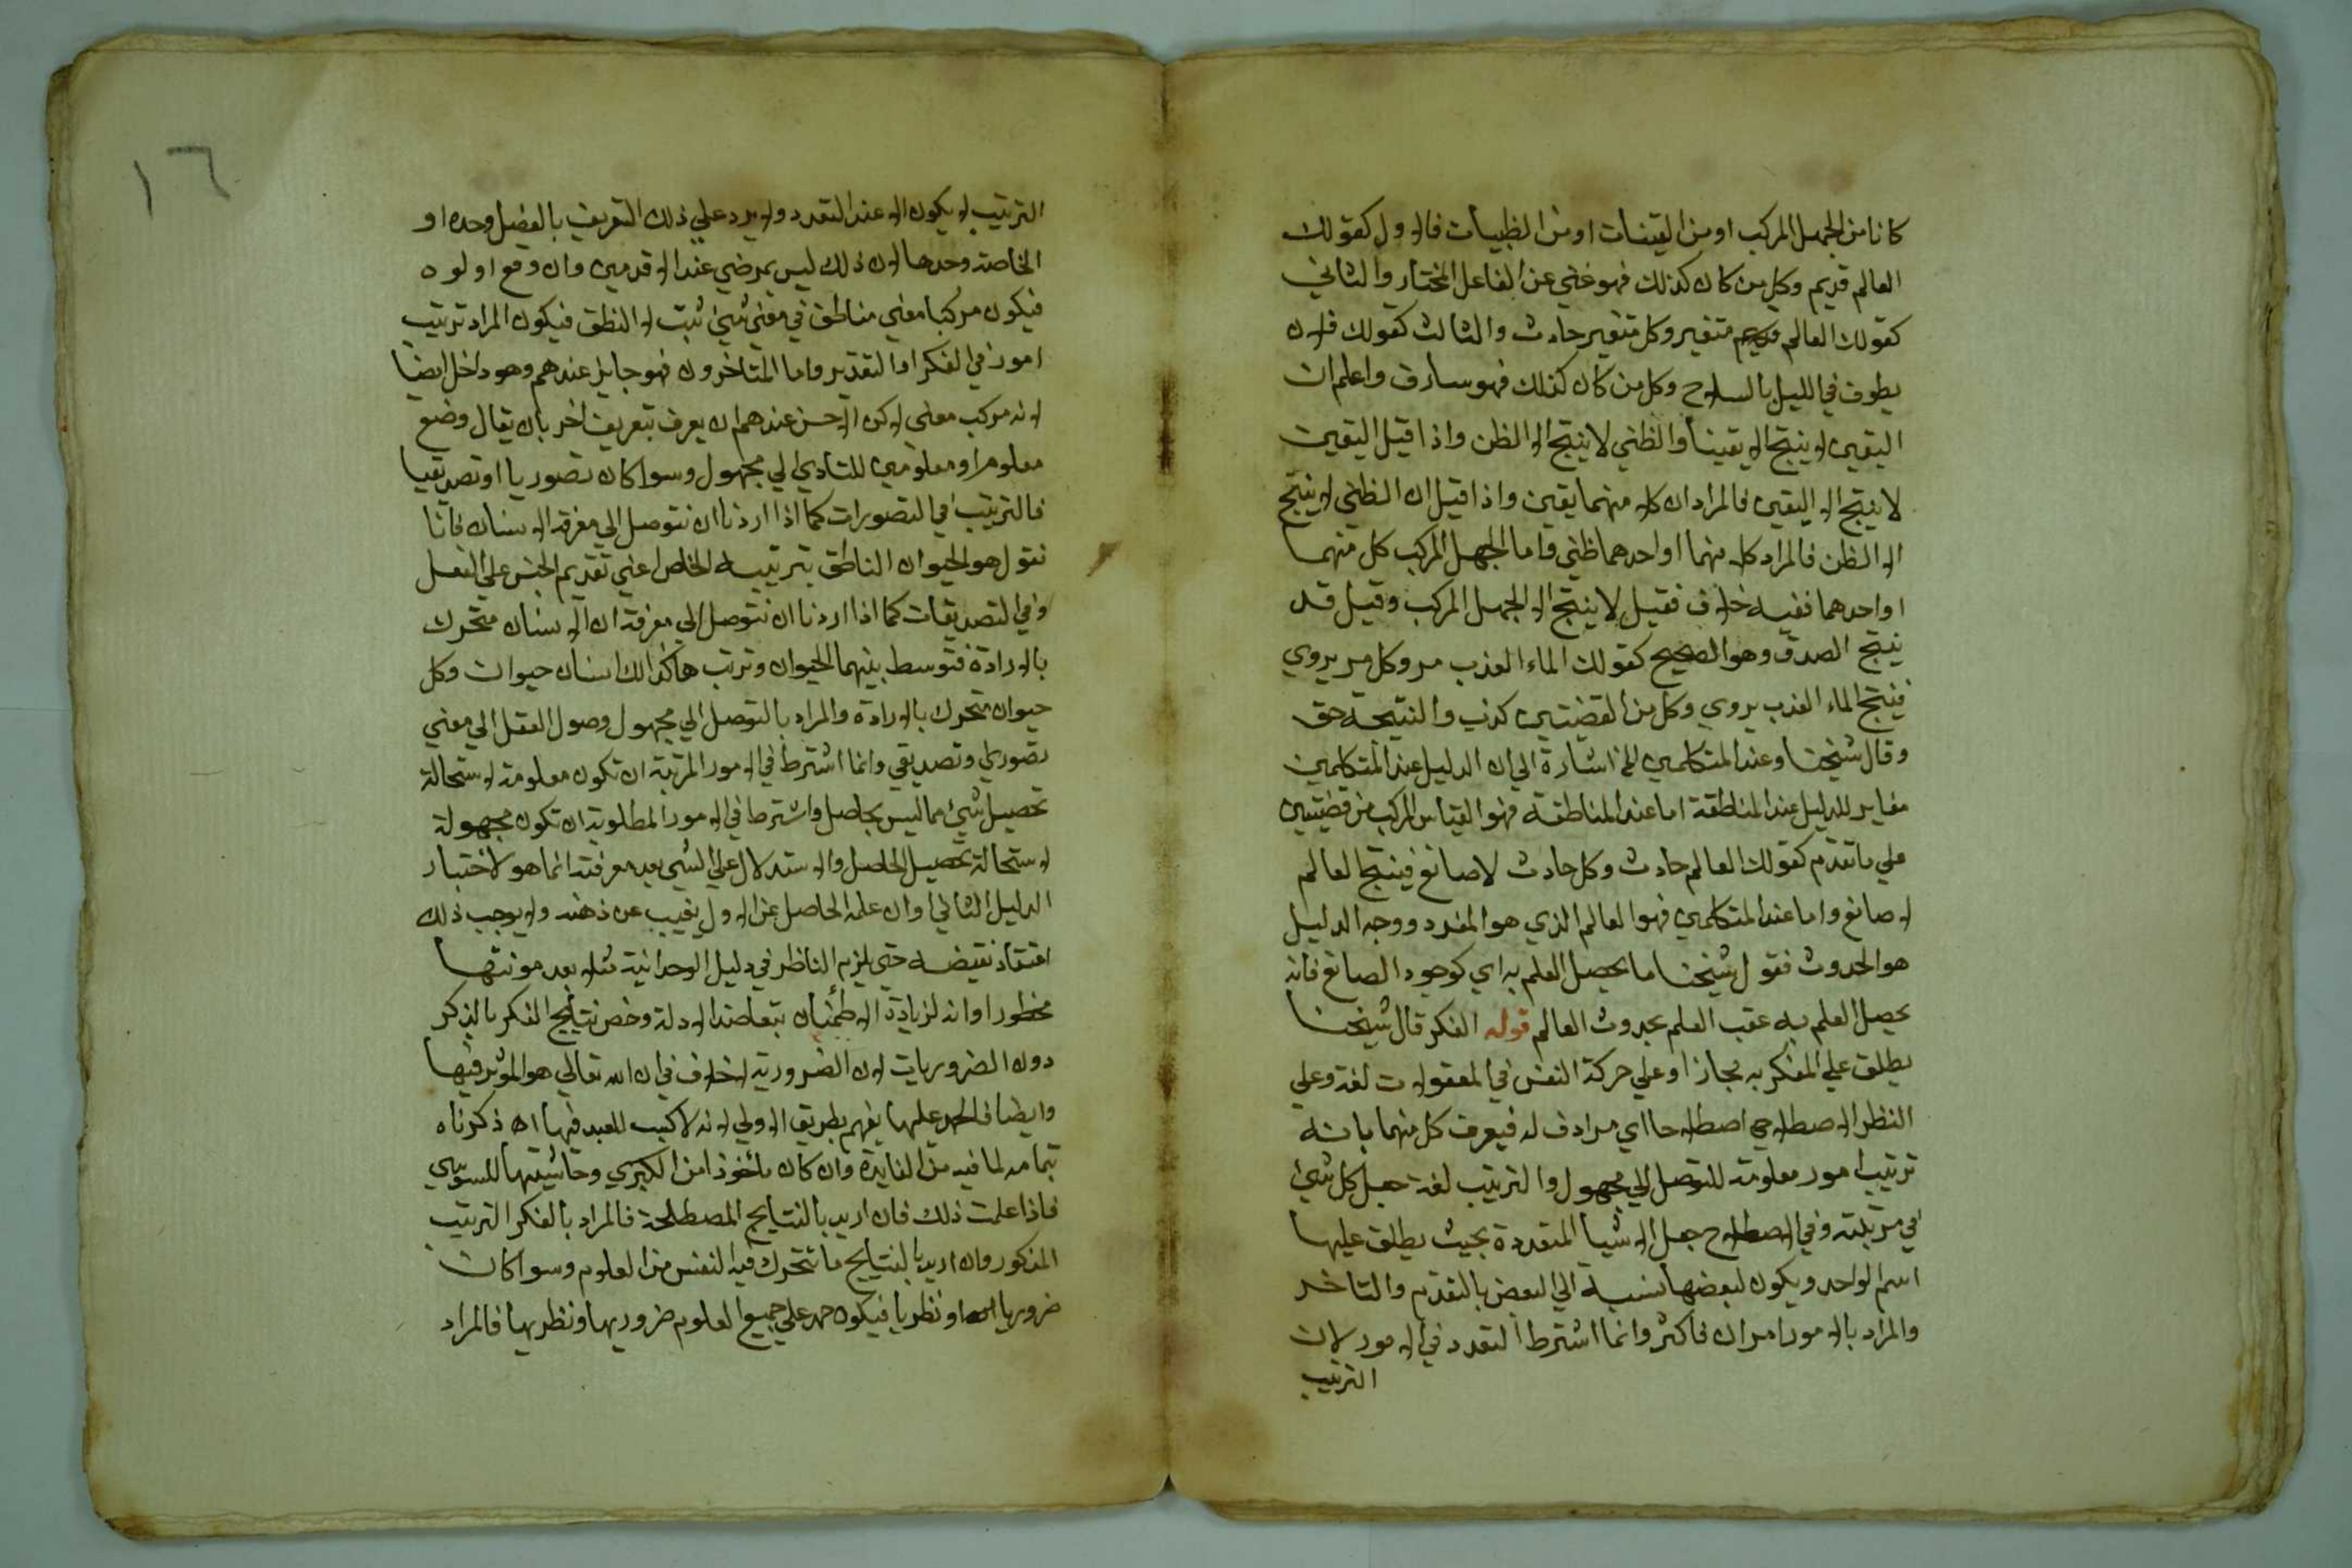 كانا من الجهل المركب او من اليقينات او من الظنيات فالاول كقولك
العالم قديم وكل من كان كذلك فهو غني عن الفاعل المختار والثاني
كقولك العالم متغير وكل متغير حادث والثالث كقولك فلان
يطوف في الليل بالسلاح وكل من كان كذلك فهو سارق واعلم ان
اليقين لا ينتج الا يقينا والظني لا ينتج الا الظن واذا قيل اليقين
لا ينتج الا اليقين فالمراد ان كلا منهما يقين واذا قيل ان الظني لا ينتج
الا الظن فالمراد كلا منهما او احدهما ظني واما الجهل المركب كل منهما
او احدهما ففيه خلاف فقيل لا ينتج الا الجهل المركب وقيل قد
ينتج الصدق وهو الصحيح كقولك الماء العذب مر وكل مر يروي
فينتج الماء العذب يروي وكل من القضيتين كذب والنتيجة حق
وقال شيخنا وعند المتكلمين الخ اشارة الي ان الدليل عند المتكلمين
مغاير للدليل عند المناطقة اما عند المناطقة فهو القياس المركب من قضيتين
علي ما تقدم كقولك العالم حادث وكل حادث لا صانع فينتج العالم
له صانع واما عند المتكلمين فهو العالم الذي هو المفرد ووجه الدليل
هو الحدوث فقول شيخنا ما يحصل العلم به اي كوجود الصانع فانه
يحصل العلم به عقب العلم بحدوث العالم قوله الفكر قال شيخنا
يطلق علي المفكر به مجازا وعلي حركة النفس في المعقولات لغة وعلي
النظر الاصطلاحي اصطلاحا اي مرادف له فيعرف كل منهما بانه
ترتيب امور معلومة للتوصل الي مجهول والترتيب لغة جعل كل شيئ
في مرتبته وفي الاصطلاح جعل الاشيا المتعددة بحيث يطلق عليها
اسم الواحد ويكون لبعضها نسبة الي البعض بالتقدم والتاخر
والمراد بالامور امران فاكثر وانما اشترط التعدد في الامور لان
الترتيب
١٦
الترتيب لا يكون الا عند التعدد ولا يرد علي ذلك التعريف بالفصل وحده او
الخاصة وحدها لان ذلك ليس بمرضي عند الاقدمين وان وقع اولوه
فيكون مركبا معني فناطق في معني شيئ ثبت له النطق فيكون المراد ترتيب
امور في الفكر او التقدير واما المتاخرون فهو جايز عندهم وهو داخل ايضا
لانه مركب معني لاكن الاحسن عندهم ان يعرف بتعريف اخر بان يقال وضع
معلوم او معلومين للتادي الي مجهول وسوا كان تصوريا او تصديقيا
فالترتيب في التصورات كما اذا اردنا ان نتوصل الي معرفة الانسان فاننا
نقول هو الحيوان الناطق بترتيبه الخاص اعني تقديم الجنس علي الفصل
وفي التصديقات كما اذا اردنا ان نتوصل الي معرفة ان الانسان متحرك
بالارادة فتوسط بينهما الحيوان وترتب هاكذا الانسان حيوان وكل
حيوان متحرك بالارادة والمراد بالتوصل الي مجهول وصول العقل الي معني
تصوري وتصديقي وانما اشترط في الامور المرتبة ان تكون معلومة لاستحالة
تحصيل شيئ مما ليس بحاصل واشترط في الامور المطلوبة ان تكون مجهولة
لاستحالة تحصيل الحاصل والاستدلال علي الشي بعد معرفته انما هو لاختبار
الدليل الثاني او ان علمه الحاصل عن الاول يغيب عن ذهنه ولا يوجب ذلك
اعتقاد نقيضه حتي يلزم الناظر في دليل الوحدانية مثلا بعد
محظورا وانه لزيادة الاطمئنان بتعاضد الادلة وخص نتايج الفكر بالذكر
دون الضروريات لان الضرورية لا خلاف في ان الله تعالي هو المؤثر فيها
وايضا فالحمد عليها يفهم بطريق الاولي لانه لا كسب للعبد فيها اه ذكرناه
بتمامه لما فيه من الفايدة وان كان ماخوذا من الكبري وحاشيتها للسوسي
فاذا علمت ذلك فان اريد بالنتايج المصطلحة فالمراد بالفكر الترتيب
المذكور وان اريد بالنتايج ما تتحرك فيه النفس من العلوم وسوا كان
ضروريا او نظريا فيكون حمد علي جميع العلوم ضروريها ونظريها فالمراد